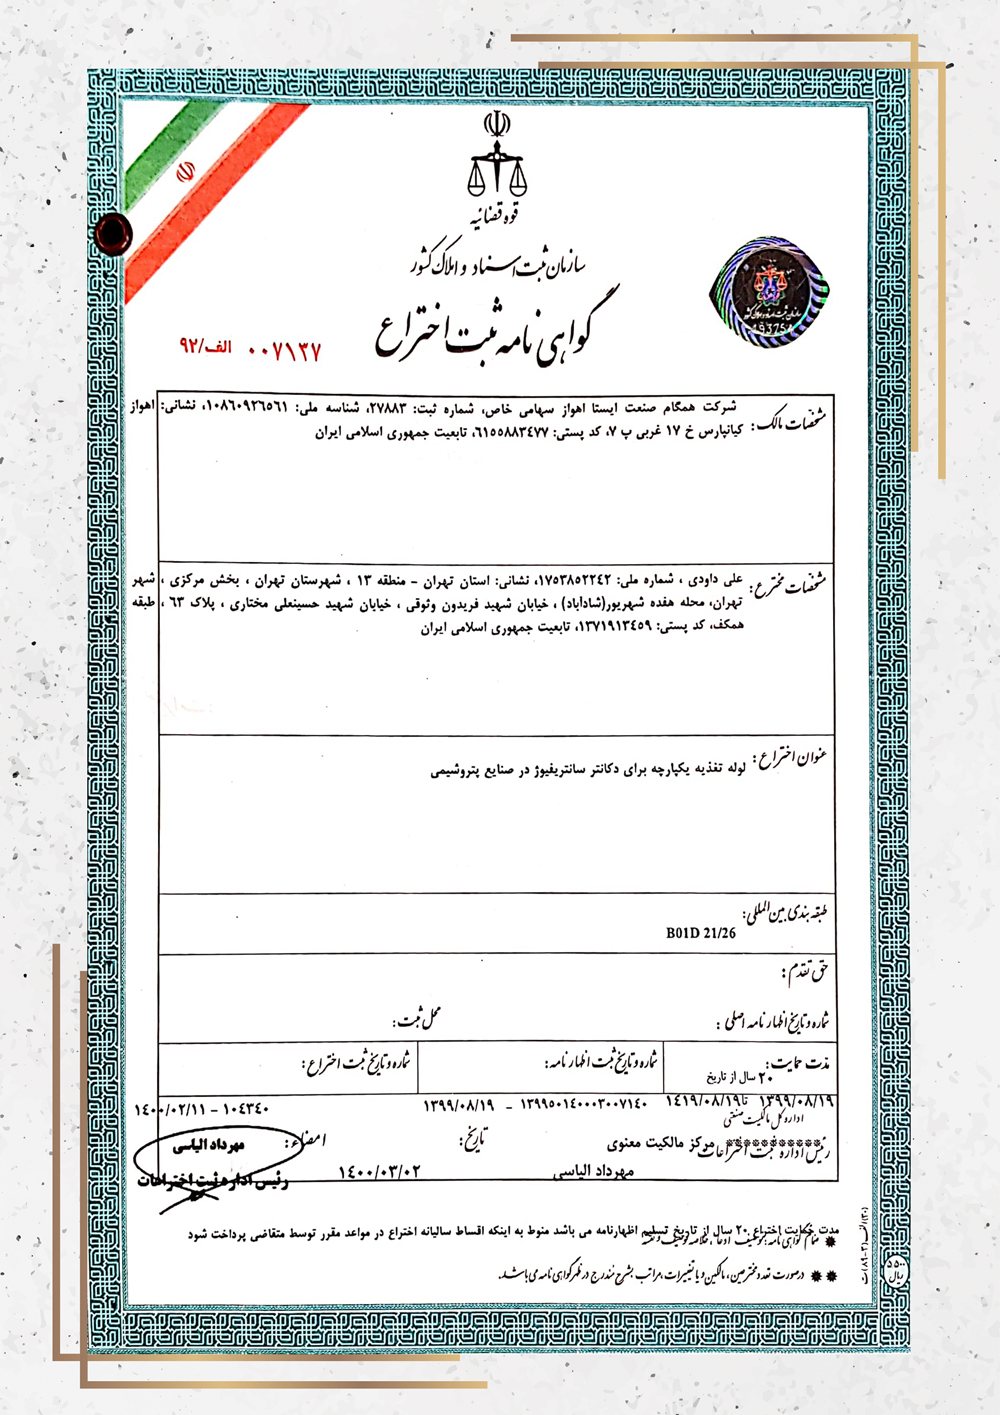 قوه قضائیه
سازمان ثبت اسناد و املاک کشور
گواهی نامه ثبت اختراع
۰۰۷۱۳۷ الف/۹۲
سازمان ثبت اسناد و املاک کشور
مشخصات مالک: شرکت همگام صنعت ایستا اهواز سهامی خاص، شماره ثبت: ۲۷۸۸۳، شناسه ملی: ۱۰۸۶۰۹۲۶۵۶۱، نشانی: اهواز
کیانپارس خ ۱۷ غربی پ ۷، کد پستی: ۶۱۵۵۸۸۳۴۷۷، تابعیت جمهوری اسلامی ایران
مشخصات مخترع: علی داودی ، شماره ملی: ۱۷۵۳۸۵۲۲۴۲، نشانی: استان تهران - منطقه ۱۳ ، شهرستان تهران ، بخش مرکزی ، شهر
تهران، محله هفده شهریور(شاداباد) ، خیابان شهید فریدون وثوقی ، خیابان شهید حسینعلی مختاری ، پلاک ۶۳ ، طبقه
همکف، کد پستی: ۱۳۷۱۹۱۳۴۵۹، تابعیت جمهوری اسلامی ایران
عنوان اختراع: لوله تغذیه یکپارچه برای دکانتر سانتریفیوژ در صنایع پتروشیمی
طبقه بندی بین المللی:
B01D 21/26
حق تقدم:
شماره و تاریخ اظهارنامه اصلی: محل ثبت:
مدت حمایت: شماره و تاریخ ثبت اظهارنامه: شماره و تاریخ ثبت اختراع:
۲۰ سال از تاریخ
۱۳۹۹/۰۸/۱۹ تا ۱۴۱۹/۰۸/۱۹ ۱۳۹۹۵۰۱۴۰۰۰۳۰۰۷۱۴۰ - ۱۳۹۹/۰۸/۱۹ ۱۰۴۳۴۰ - ۱۴۰۰/۰۲/۱۱
اداره کل مالکیت صنعتی
رئیس اداره ثبت اختراعات مرکز مالکیت معنوی تاریخ: امضاء: مهرداد الیاسی
مهرداد الیاسی ۱۴۰۰/۰۳/۰۲ رئیس اداره ثبت اختراعات
مدت حمایت اختراع ۲۰ سال از تاریخ تسلیم اظهارنامه می باشد منوط به اینکه اقساط سالیانه اختراع در مواعد مقرر توسط متقاضی پرداخت شود
** درصورت تعدد مخترعین، مالکین و یا تغییرات، مراتب بشرح مندرج در ظهر گواهی نامه می باشد.
ریال